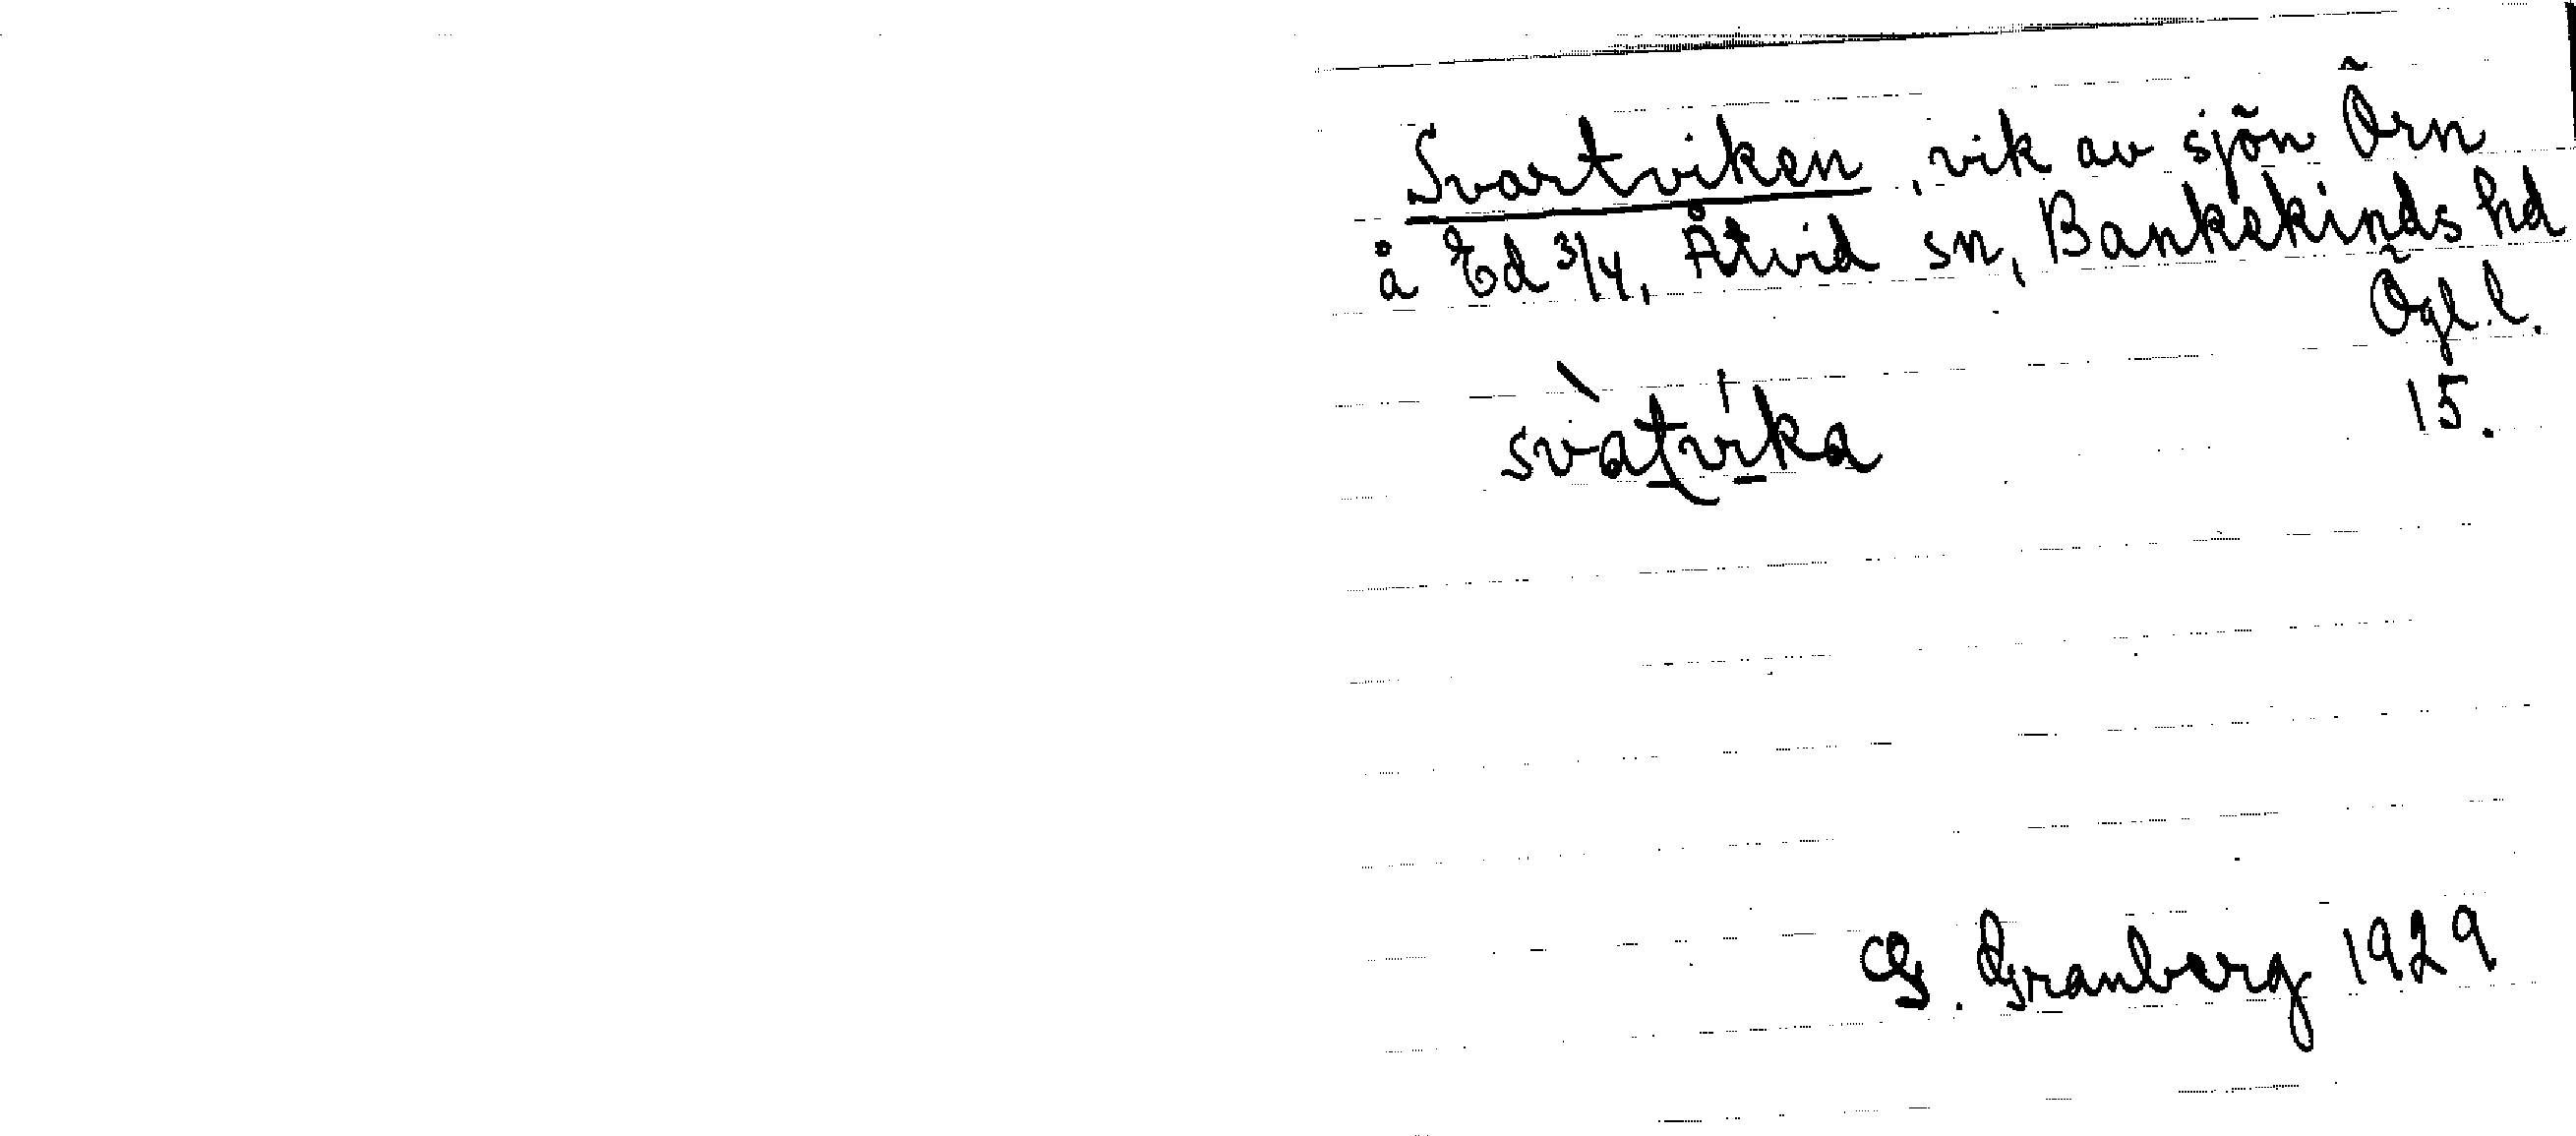 Svartviken, vik av sjön Örn
å Ed 3/4, Åtvid sn, Bankekinds hd
Ögl. l.
15.
svàtvı̍ka
G. Granberg 1929